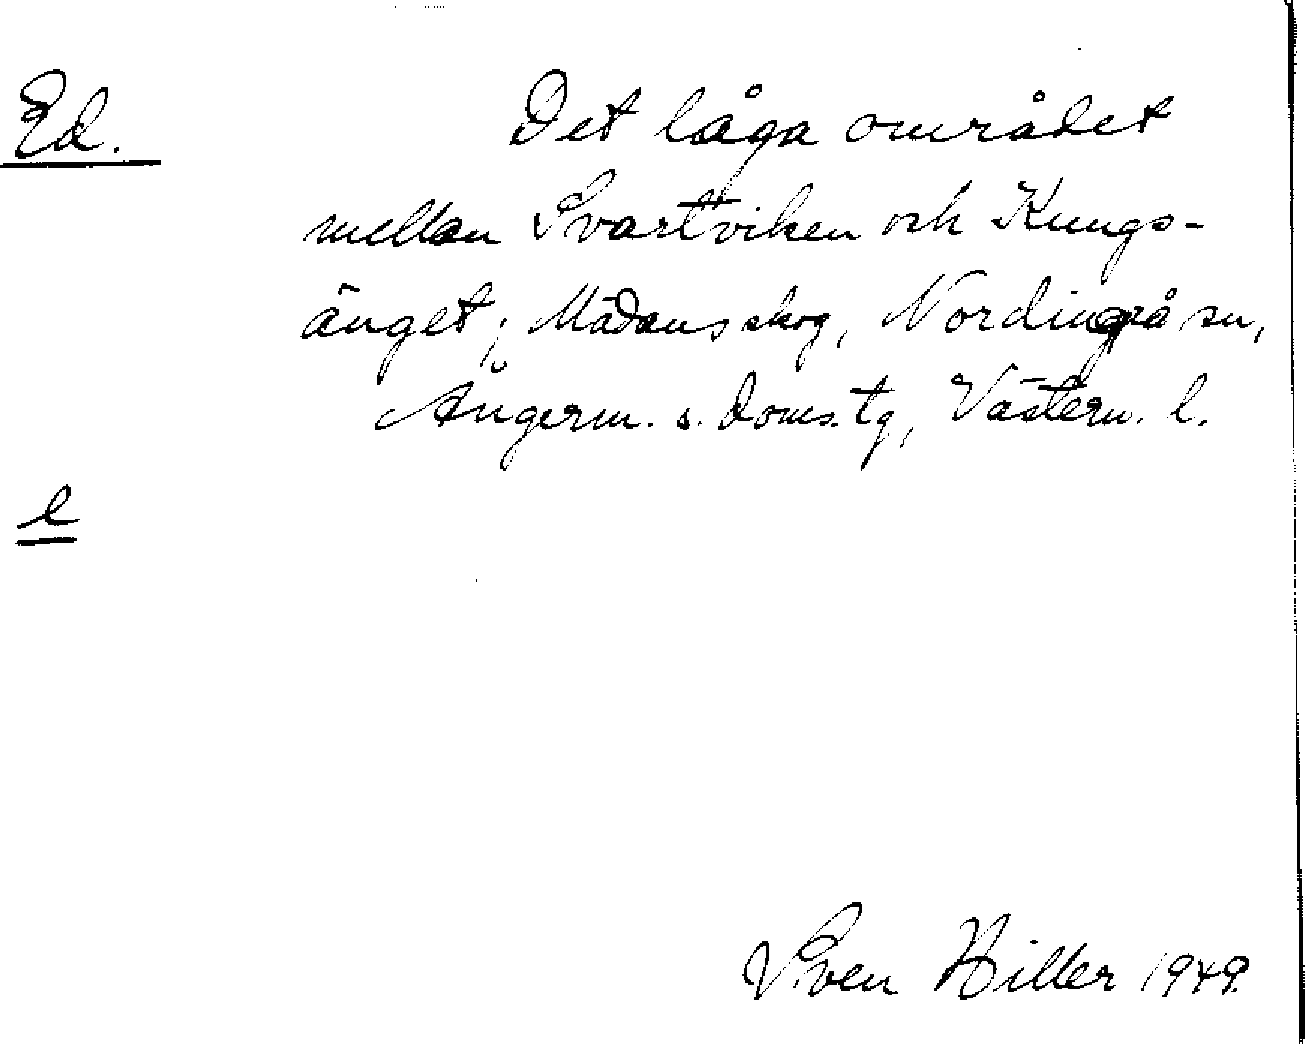 Ed.
Det låga området
mellan Svartviken och Kungs-
änget; Mädans skog, Nordingrå sn,
Ångerm. s. doms. tg, Västern. l.
e
Sven Hiller 1949.